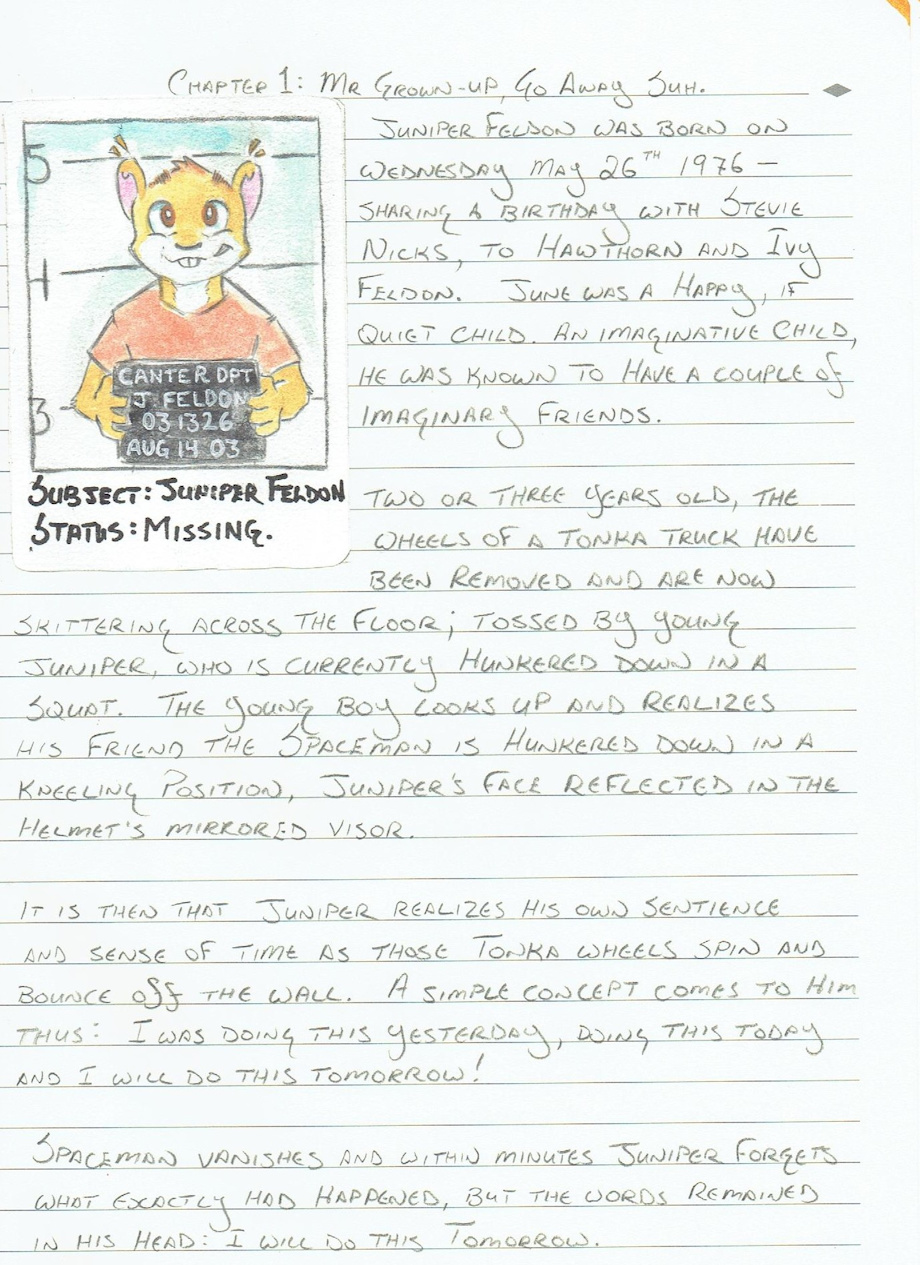 Chapter 1: Mr Grown-up, Go Away Suh.
5
4
3
CANTER DPT
J. FELDON
03 1326
AUG 14 03
Subject: Juniper Feldon
Status: Missing.
Juniper Feldon was born on
Wednesday May 26th 1976 –
sharing a birthday with Stevie
Nicks, to Hawthorn and Ivy
Feldon. June was a happy, if
quiet child. An imaginative child,
he was known to have a couple of
imaginary friends.
Two or three years old, the
wheels of a Tonka truck have
been removed and are now
skittering across the floor; tossed by young
Juniper, who is currently hunkered down in a
squat. The young boy looks up and realizes
his friend the Spaceman is hunkered down in a
kneeling position, Juniper's face reflected in the
helmet's mirrored visor.
It is then that Juniper realizes his own sentience
and sense of time as those Tonka wheels spin and
bounce off the wall. A simple concept comes to him
thus: I was doing this yesterday, doing this today
and I will do this tomorrow!
Spaceman vanishes and within minutes Juniper forgets
what exactly had happened, but the words remained
in his head: I will do this tomorrow.